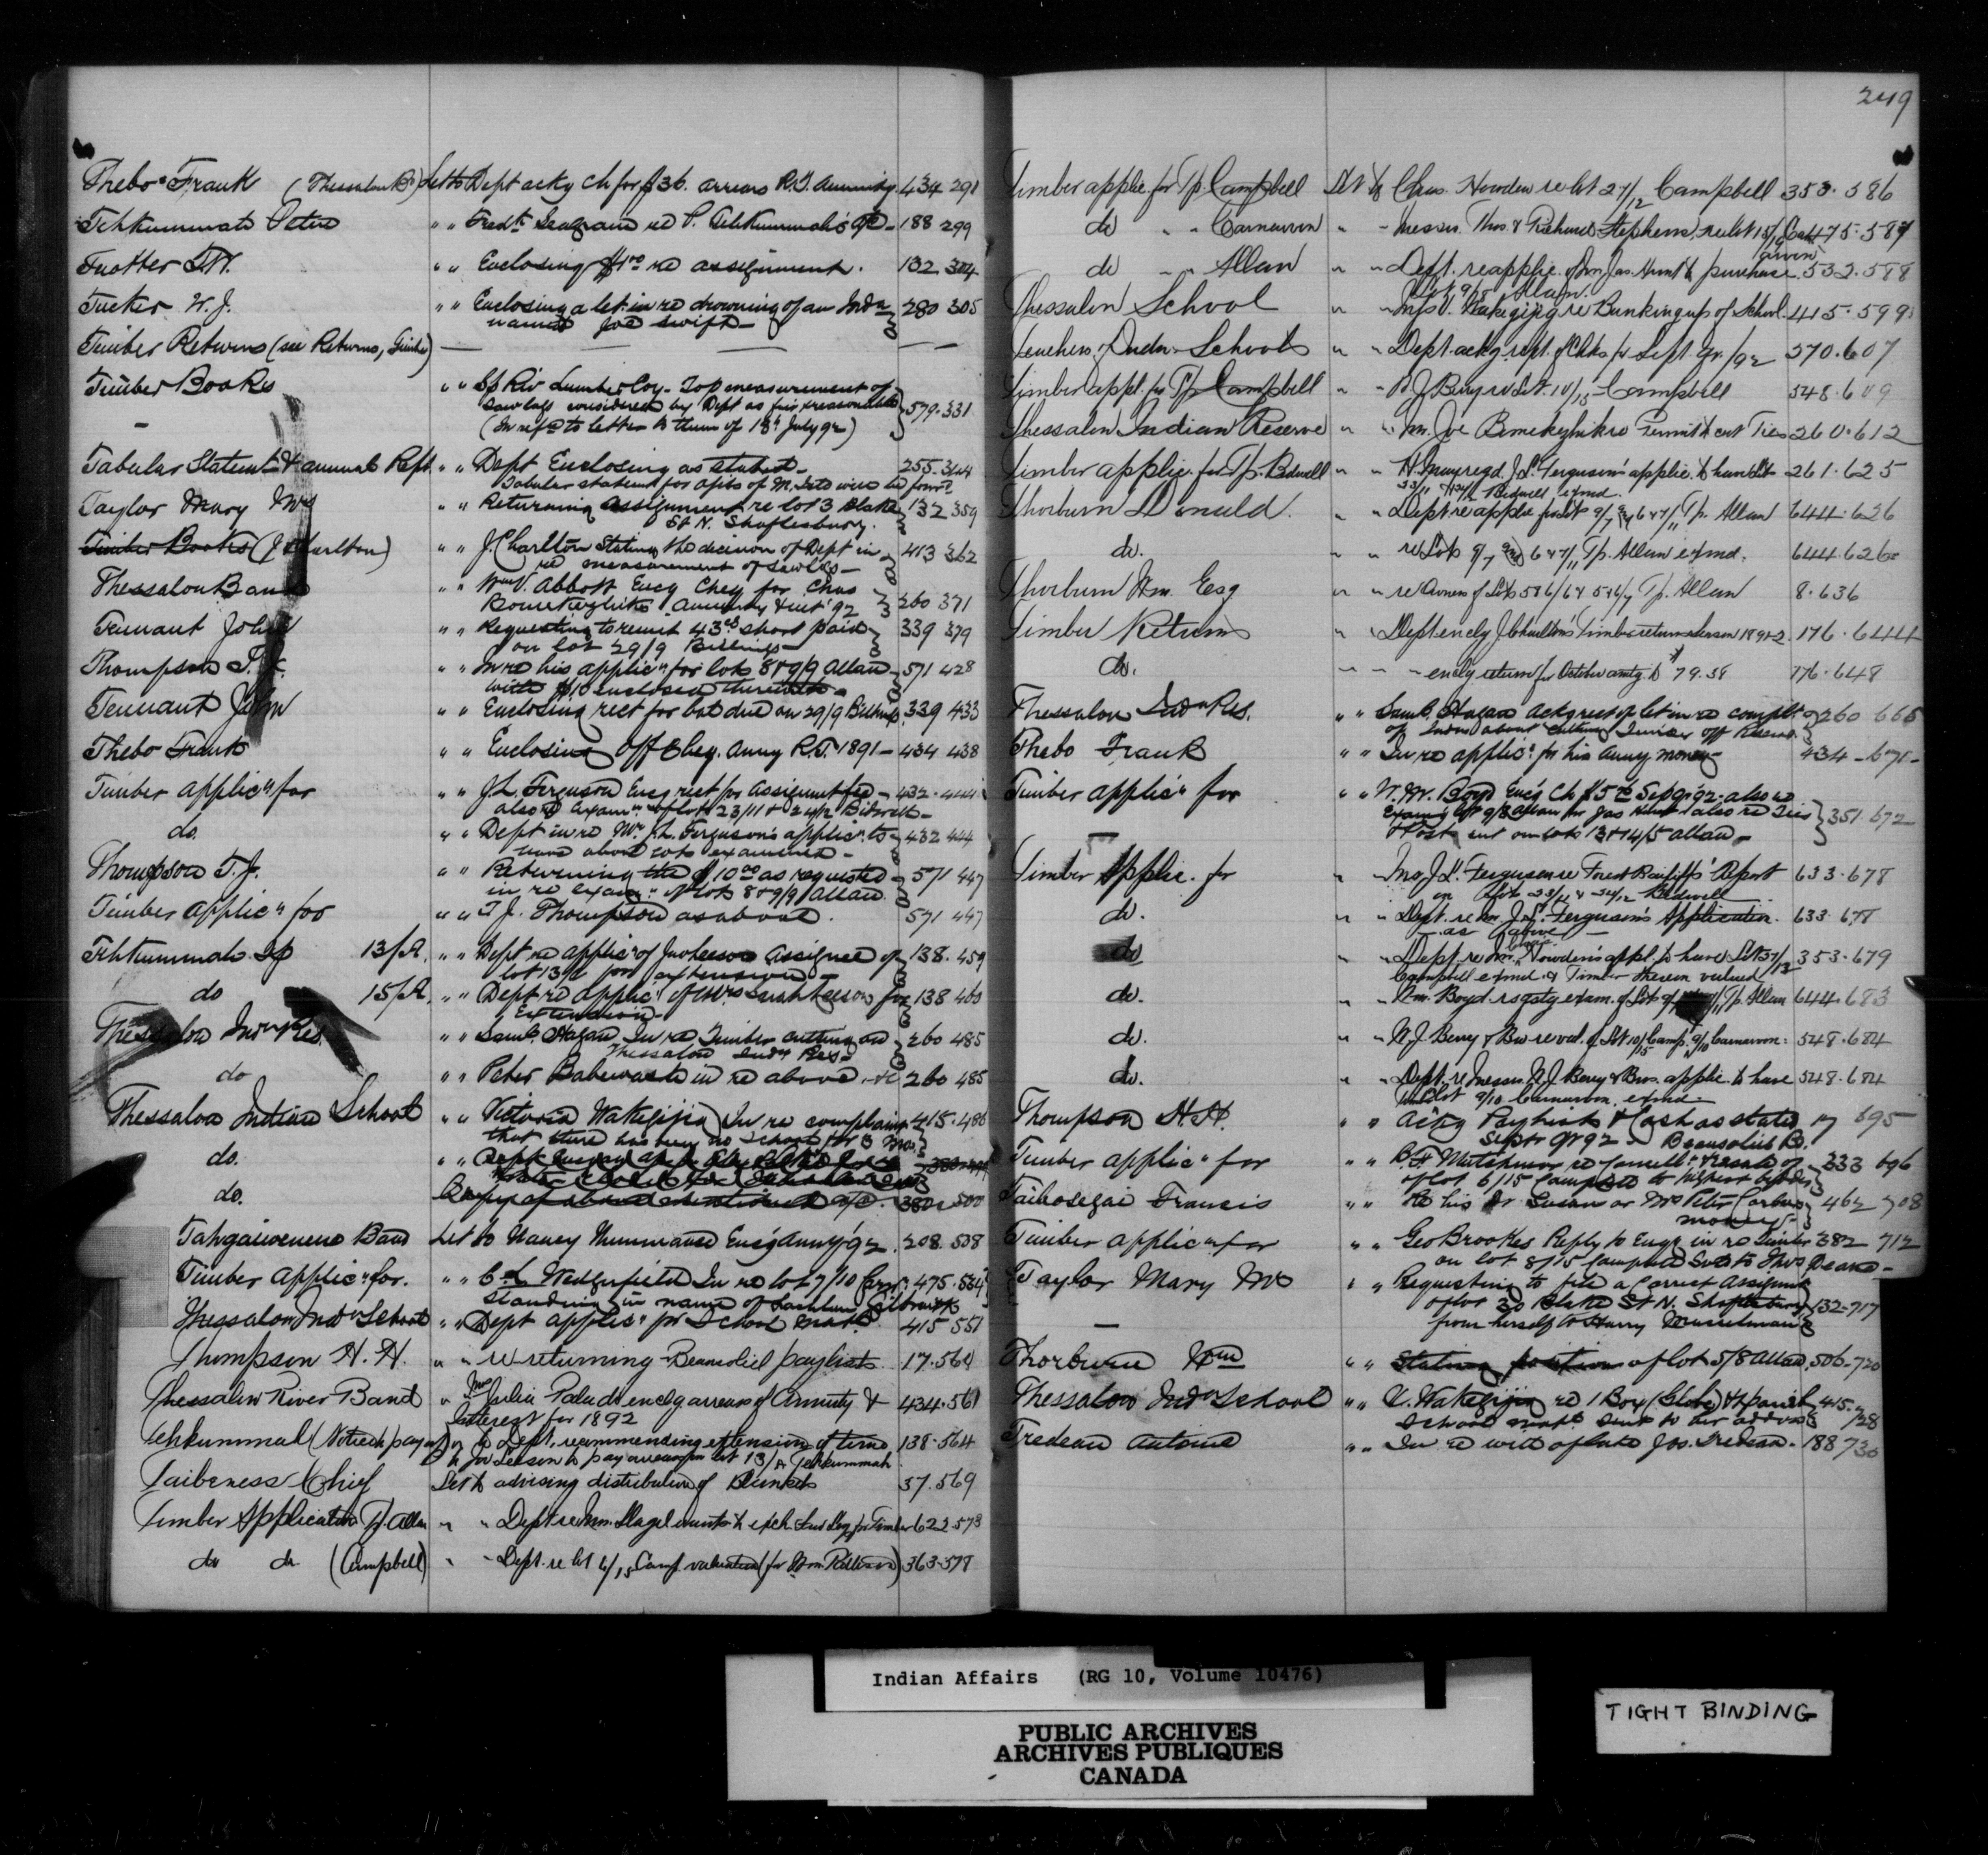 Thebo Frank (Thessalon B.) Let to Dept acky ch for $36. arrears R.T. Annuity. 434 291
Tehkummah Peter " " Fredk Seagram re P. Tehkummah's a/c - 188 299
Trotter " " Enclosing $1.00 re assignment. 132 304
Tucker W. J. " " Enclosing a let. in re drowning of an Indn 280 305
named Joe Swift -
Timber Returns (see Returns, Timber) — — —
Timber Books " " Sp Riv Lumber Coy - Top measurement of
saw logs considered by Dept as fair & reasonable 579.331
(In ref ce to letter to them of 18th July 92)
Tabular Statemt & annual Rept. " " Dept Enclosing as stated - 255.344
Tabular statement for
Taylor Mary Mrs " " Returning assignment re lot 3 Blake 132 359
St N. Shaftesbury.
Timber Books (J Charlton) " " J. Charlton Stating the decision of Dept in 413 362
re measurement of saw logs -
Thessalon Band " " Wm V. Abbott Encg Cheq for Chas
Annuity & int 92 260 371
Tennant John " " Requesting to remit 43cts short paid 339 379
on lot 29/9 Billings -
Thompson T. J. " " In re his applicn for lots 8 & 9/9 Allan 571 428
with $10 enclosed therewith -
Tennant John " " Enclosing rect for bal due on 29/9 Billings 339 433
Thebo Frank " " Enclosing Off Cheq. Anny R.T. 1891 - 434 438
Timber applicn for " " J.L. Ferguson Encg rect for assignment fee - 432.444
also re examn of lots 23/11 & 24/12 Bidwell -
do. " " Dept in re Mr J.L. Ferguson's applicn to 432 444
have above lots examined -
Thompson T. J. " " Returning the $10.00 as requested 571 447
in re examn of lots 8 & 9/9 Allan
Timber applicn for " " T. J. Thompson as above. 571 447
Tehkummah Tp 13/A. " " Dept re applicn of Jno Leeson Assignee of 138.459
lot 13/A for extension -
do 15/A. " " Dept re applicn of Mrs Sarah Leeson for 138 460
Extension -
Thessalon Indn Res. " " Saml. Hagan In re Timber cutting on 260 485
Thessalon Indn Res -
do " " Peter Babewash in re above 260 485
Thessalon Indian School " " Victoria Wakegijig In re complaint 415.486
that there has been no School for 3 mos
do.
do. Copy of above mentioned a/c. 380 500
Tahgaiwenene Band Let to Nancy Encg Anny 92. 208.508
Timber applicn for. " " Wedgefield In re lot 7/10 Carn. 475.534
standing in name of
Thessalon Indn School " " Dept applicn for School matls 415 551
Thompson H. H. " " re returning Beausoliel paylists 17.560
Thessalon River Band " Mrs Julia Palude enclg arrears of Annuity & 434.561
Interest for 1892
Tehkummah (Notice to pay up) " to Dept, recommending extension of time 138.564
to Jno Leeson to pay arrears on lot 13/A Tehkummah
Taibeness Chief Let to advising distribution of Blankets 37.569
Timber Application Tp. Allan " " Dept re Wm. Slagel wants to exch for Timber 622.573
do do (Campbell) " " Dept. re lot 6/15 Camp. valuation (for Wm 363.578
249
Timber applic for Tp Campbell Let to Chas. Howden re lot 27/12 Campbell 353.586
do " " Carnarvon " " Messrs. Thos. & Richard Stephens, re lot 15/10 Carn 475.587
arvon
do " " Allan " " Dept. re applic. of Wm Jas. Hunt to purchase 532.588
Lot 9/8 Allan.
Thessalon School " " Miss V. Wakegijig re Banking up of School. 415.599
Teachers of Indn. Schools " " Dept. ackg rept. of Chks for Sept. qr./92 570.607
Timber appl. for Tp Campbell " " N. J. Berry re lot. 10/15 Campbell 548.609
Thessalon Indian Reserve " " Mr. Joe re Permit to cut Ties 260.612
Timber applic. for Tp. Bidwell " " H. regd J. L. Ferguson's applic. to have Lots 261.625
23/11 & 24/12 Bidwell exmd.
Thorburn Donald. " " Dept re applic for lots 9/7 and 6 & 7/11 Tp. Allan 644.626
do. " " re Lots 9/7 and 6 & 7/11 Tp. Allan exmd. 644.626
Thorburn Wm. Esq " " re Owners of Lots 5 & 6/6 & 5 & 6/7 Tp. Allan 8.636
Timber Returns " Dept enclg J. Charlton's Timber return season 1891-2. 176.644
do. " " " enclg return for October amtg to $79.58 176.648
Thessalon Indn Res. " " Saml. Hagan ackg rect of let in re complt 260 665
of Indns about cutting Timber off Reserve
Thebo Frank " " In re applicn for his anny money - 434 - 671 -
Timber applicn for " " W. W. Boyd Encg Ch $5.00 Sep 9/92 - also re
Examg lot 9/8 Allan for Jas Hunt & also re Ties 351.672
& Posts cut on lots 13 & 14/5 Allan -
Timber Applic. for " " Mr J. L. Ferguson re Forest Bailiff's Report 633.678
on lots 23/11 & 24/12 Bidwell
do. " " Dept. re Mr. J. L. Ferguson's Application. 633.678
as above -
do " " Dept. re Mr. Chas. Howden's appl. to have Lot 27/12 353.679
Campbell exmd & Timber thereon valued
do. " " Wm. Boyd rsqstg exam. of Lots Tp. Allan 644.683
do. " " N. J. Berry & Bro re val. of Lot 10/15 Camp. & 9/10 Carnarvon. 548.684
do. " " Dept. re Messrs N. J. Berry & Bros. applic. to have 548.684
lot 9/10 Carnarvon. exmd -
Thompson H. H. " " Ackg Paylists & Cash as stated 17 695
Septr qr 92 - Beausoliel B.
Timber applicn for " " B. H Mutchmor re & resale of 333 696
of lot 6/15 Campbell to highest bidder
Taibosegai Francis " " Re his Dr Susan or Mrs Peter 462 708
money -
Timber applicn for " " Geo Brookes Reply to Enqy in re Timber 382 712
on lot 8/15 Campbell Sold to Thos Deans -
Taylor Mary Mrs " " Requesting to file a correct Assignmt
of lot 30 Blake St N. Shaftesbury 132-717
from herself to Harry Musselman
Thorburn Wm " " Stating position of lot 5/8 Allan. 506-720
Thessalon Indn School " " V. Wakegijig re 1 Box (Globe) & 1 parcel 415-
School matls sent to her address 728
Tredeau Antoine " " In re will of late Jos. Tredeau. 188 730
Indian Affairs (RG 10, Volume 10476)
PUBLIC ARCHIVES
ARCHIVES PUBLIQUES
CANADA
TIGHT BINDING